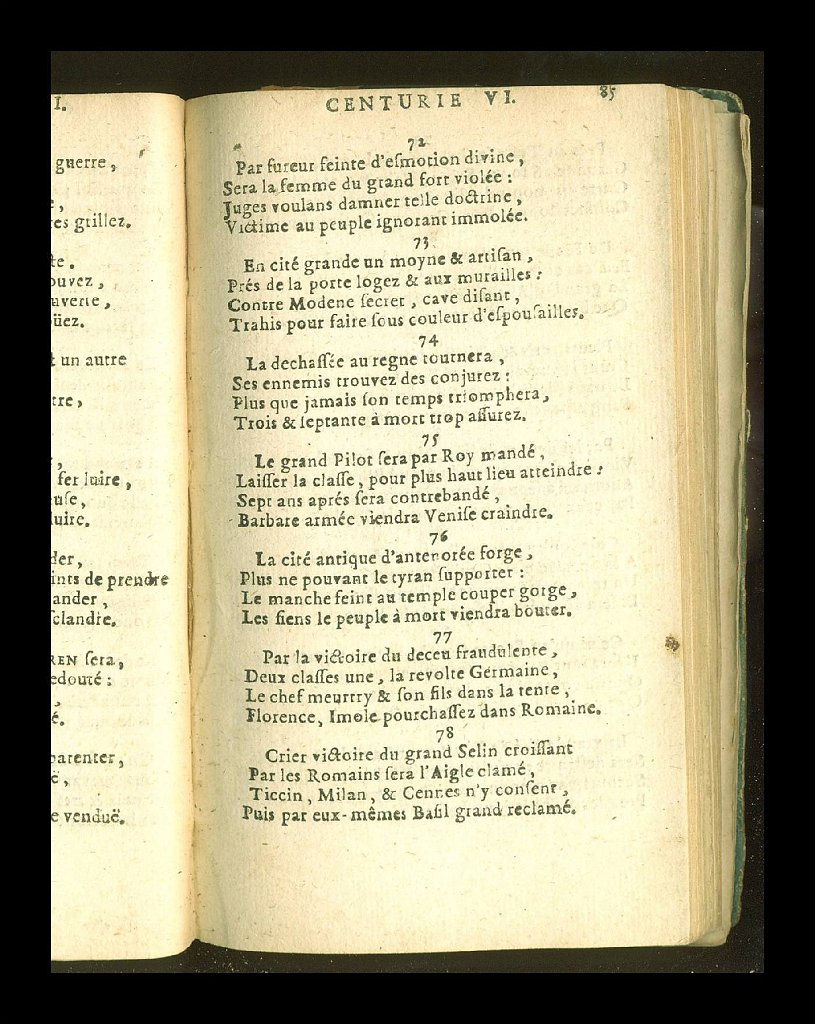 I.
guerre,
,
es grillez.
te.
ouvez,
uverte,
üez.
un autre
tre,
,
fer luire,
use,
luire.
der,
ints de prendre
ander,
clandre.
REN ſera,
edouté :
,
é.
parenter,
,
e venduë.
CENTURIE VI. 85
72
Par fureur feinte d'eſmotion divine,
Sera la femme du grand fort violée :
Juges voulans damner telle doctrine,
Victime au peuple ignorant immolée.
73
En cité grande un moyne & artiſan,
Prés de la porte logez & aux murailles :
Contre Modene ſecret, cave diſant,
Trahis pour faire ſous couleur d'eſpouſailles.
74
La dechaſſée au regne tournera,
Ses ennemis trouvez des conjurez :
Plus que jamais ſon temps triomphera,
Trois & ſeptante à mort trop aſſurez.
75
Le grand Pilot ſera par Roy mandé,
Laiſſer la claſſe, pour plus haut lieu atteindre :
Sept ans aprés ſera contrebandé,
Barbare armée viendra Veniſe craindre.
76
La cité antique d'antenorée forge,
Plus ne pouvant le tyran ſupporter :
Le manche feint au temple couper gorge,
Les ſiens le peuple à mort viendra bouter.
77
Par la victoire du deceu fraudulente,
Deux claſſes une, la revolte Germaine,
Le chef meurtry & ſon fils dans la tente,
Florence, Imole pourchaſſez dans Romaine.
78
Crier victoire du grand Selin croiſſant
Par les Romains ſera l'Aigle clamé,
Ticcin, Milan, & Gennes n'y conſent,
Puis par eux-mêmes Baſil grand reclamé.